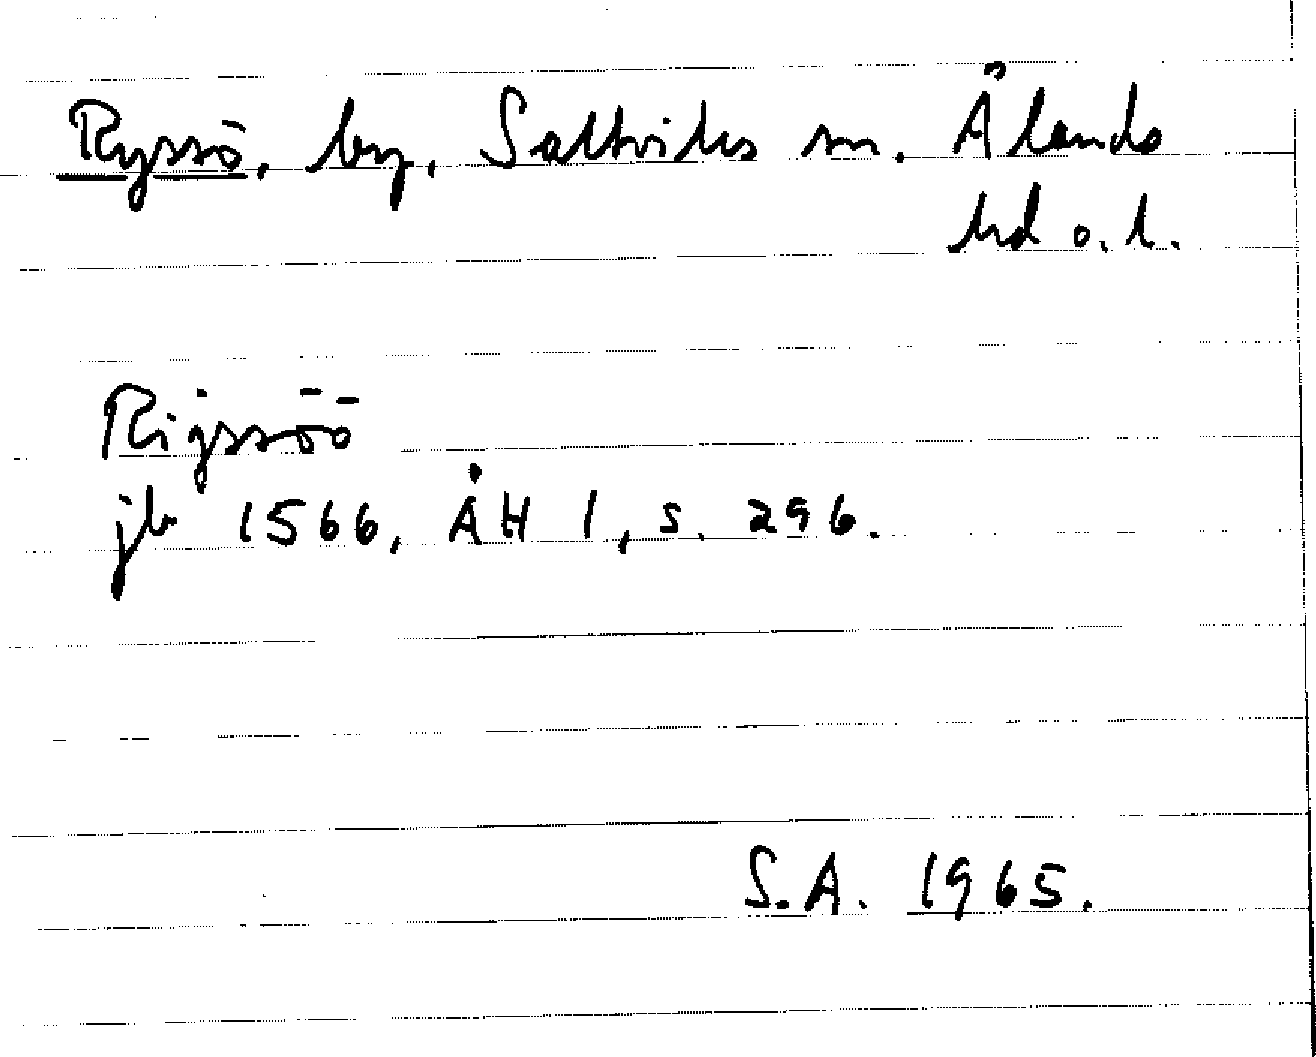 Ryssö, by, Saltviks sn. Ålands
hd o. l.
Rijssöö
jb 1566, ÅH 1, s. 296.
S.A. 1965.